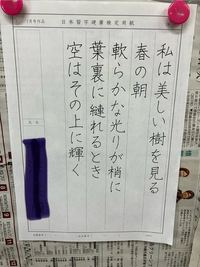 日本習字硬筆検定用紙
私は美しい樹を見る
春の朝
軟らかな光りが梢に
葉裏に縺れるとき
空はその上に輝く
氏名